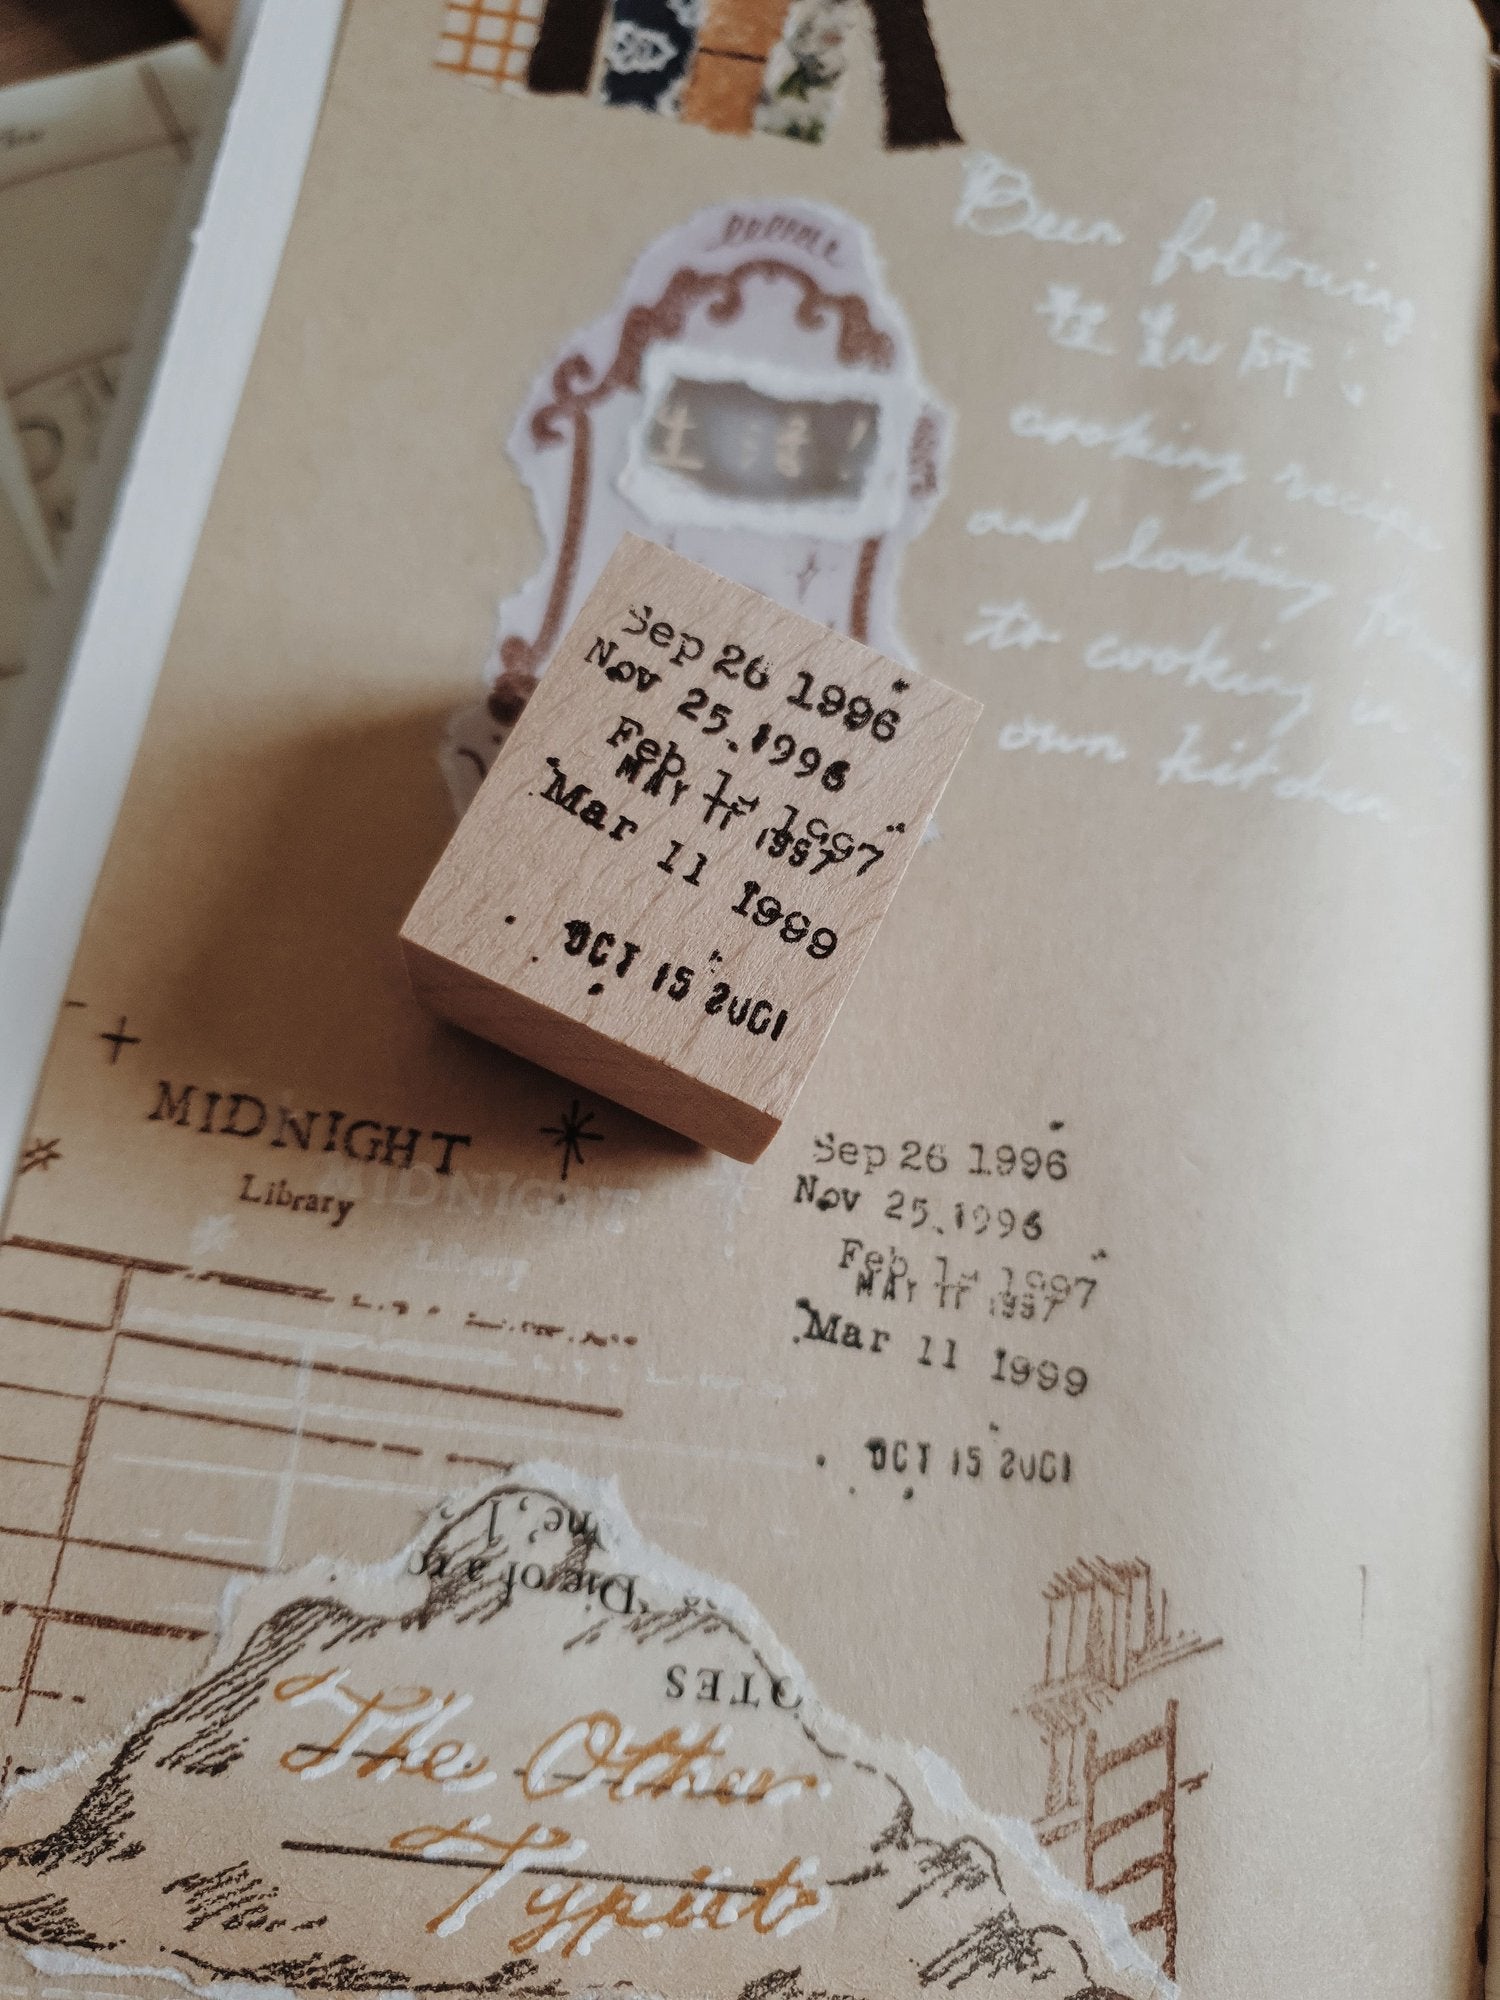 Been following
cooking recipe
and looking
to cooking in
own kitchen
生活!
Sep 26 1996
Nov 25.1996
Feb 1 1997
MAY 1997
Mar 11 1999
OCT 15 2001
MIDNIGHT
Library
MIDNIGHT
Library
Sep 26 1996
Nov 25.1996
Feb 1 1997
MAY 1997
Mar 11 1999
OCT 15 2001
"Die of a
OTES
The Other
Typist